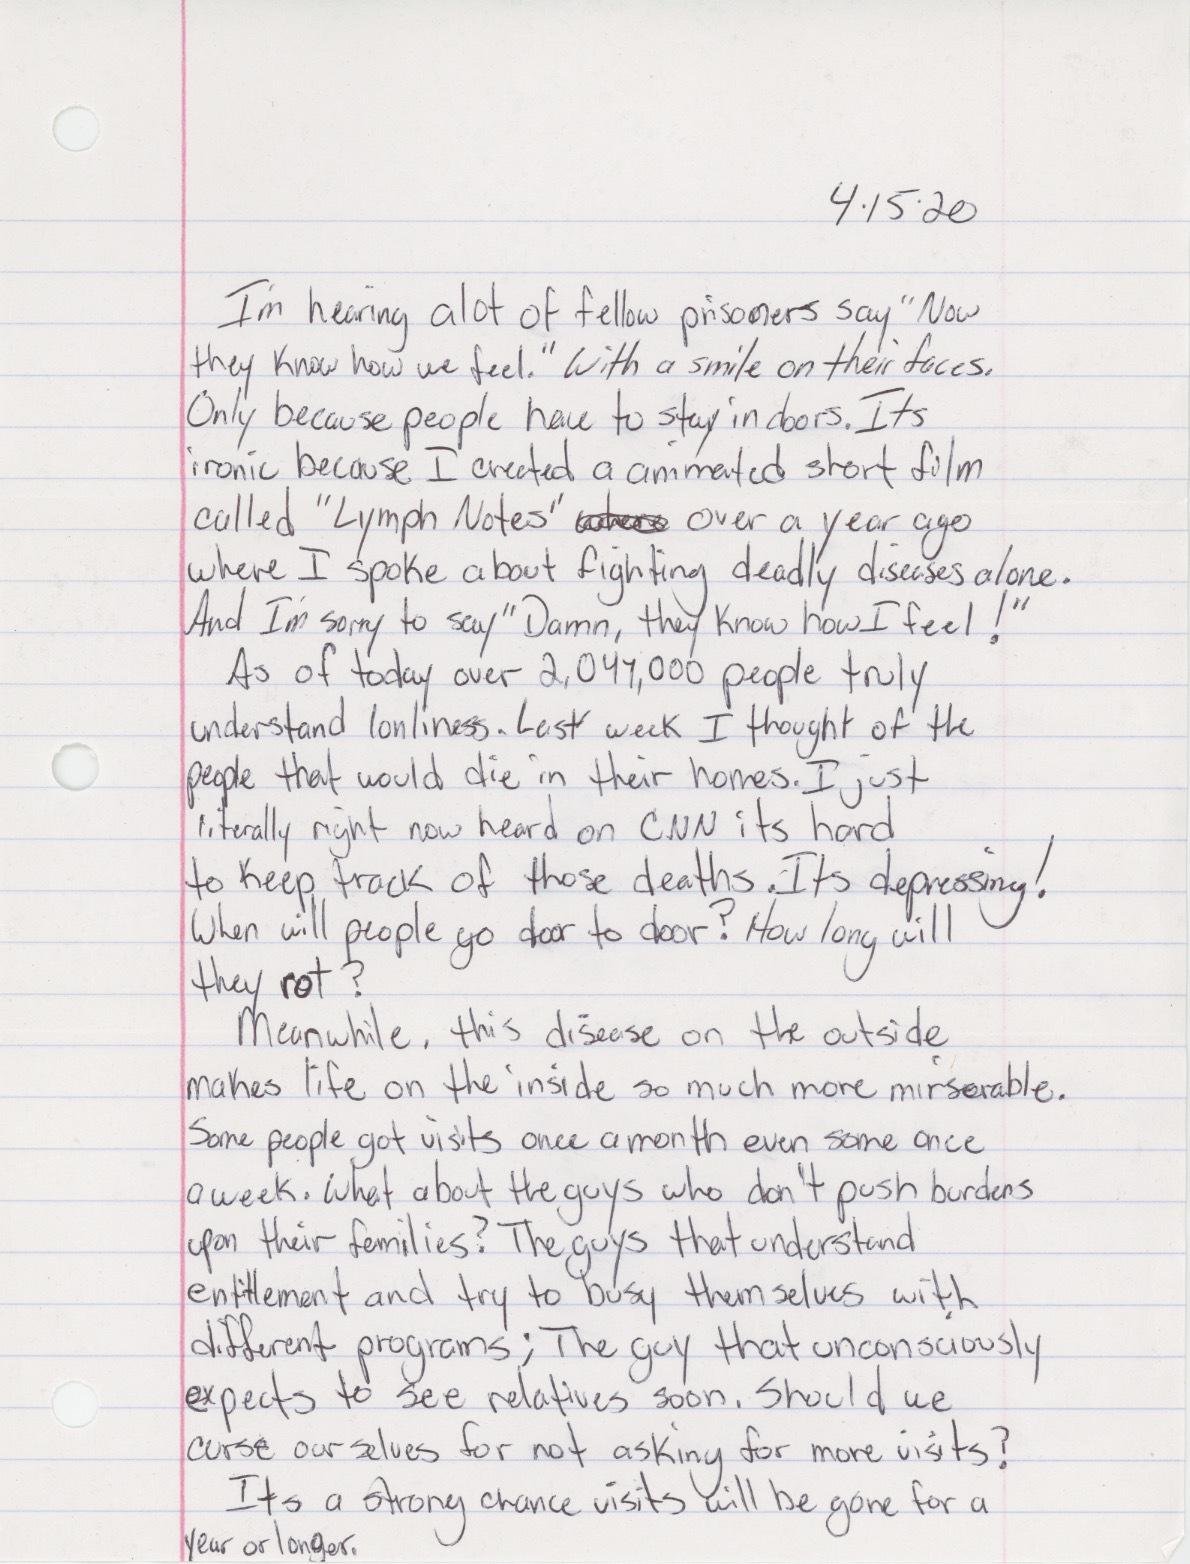 4.15.20
I'm hearing alot of fellow prisoners say "Now
they know how we feel." With a smile on their faces.
Only because people have to stay in doors. Its
ironic because I created a animated short film
called "Lymph Notes" over a year ago
where I spoke about fighting deadly diseases alone.
And I'm sorry to say "Damn, they know how I feel!"
As of today over 2,047,000 people truly
understand lonliness. Last week I thought of the
people that would die in their homes. I just
literally right now heard on CNN its hard
to keep track of those deaths. Its depressing!
When will people go door to door? How long will
they rot?
Meanwhile, this disease on the outside
makes life on the inside so much more mirserable.
Some people got visits once a month even some once
a week. What about the guys who don't push burdens
upon their families? The guys that understand
entitlement and try to busy themselves with
different programs; The guy that unconsciously
expects to see relatives soon. Should we
curse ourselves for not asking for more visits?
Its a strong chance visits will be gone for a
year or longer.